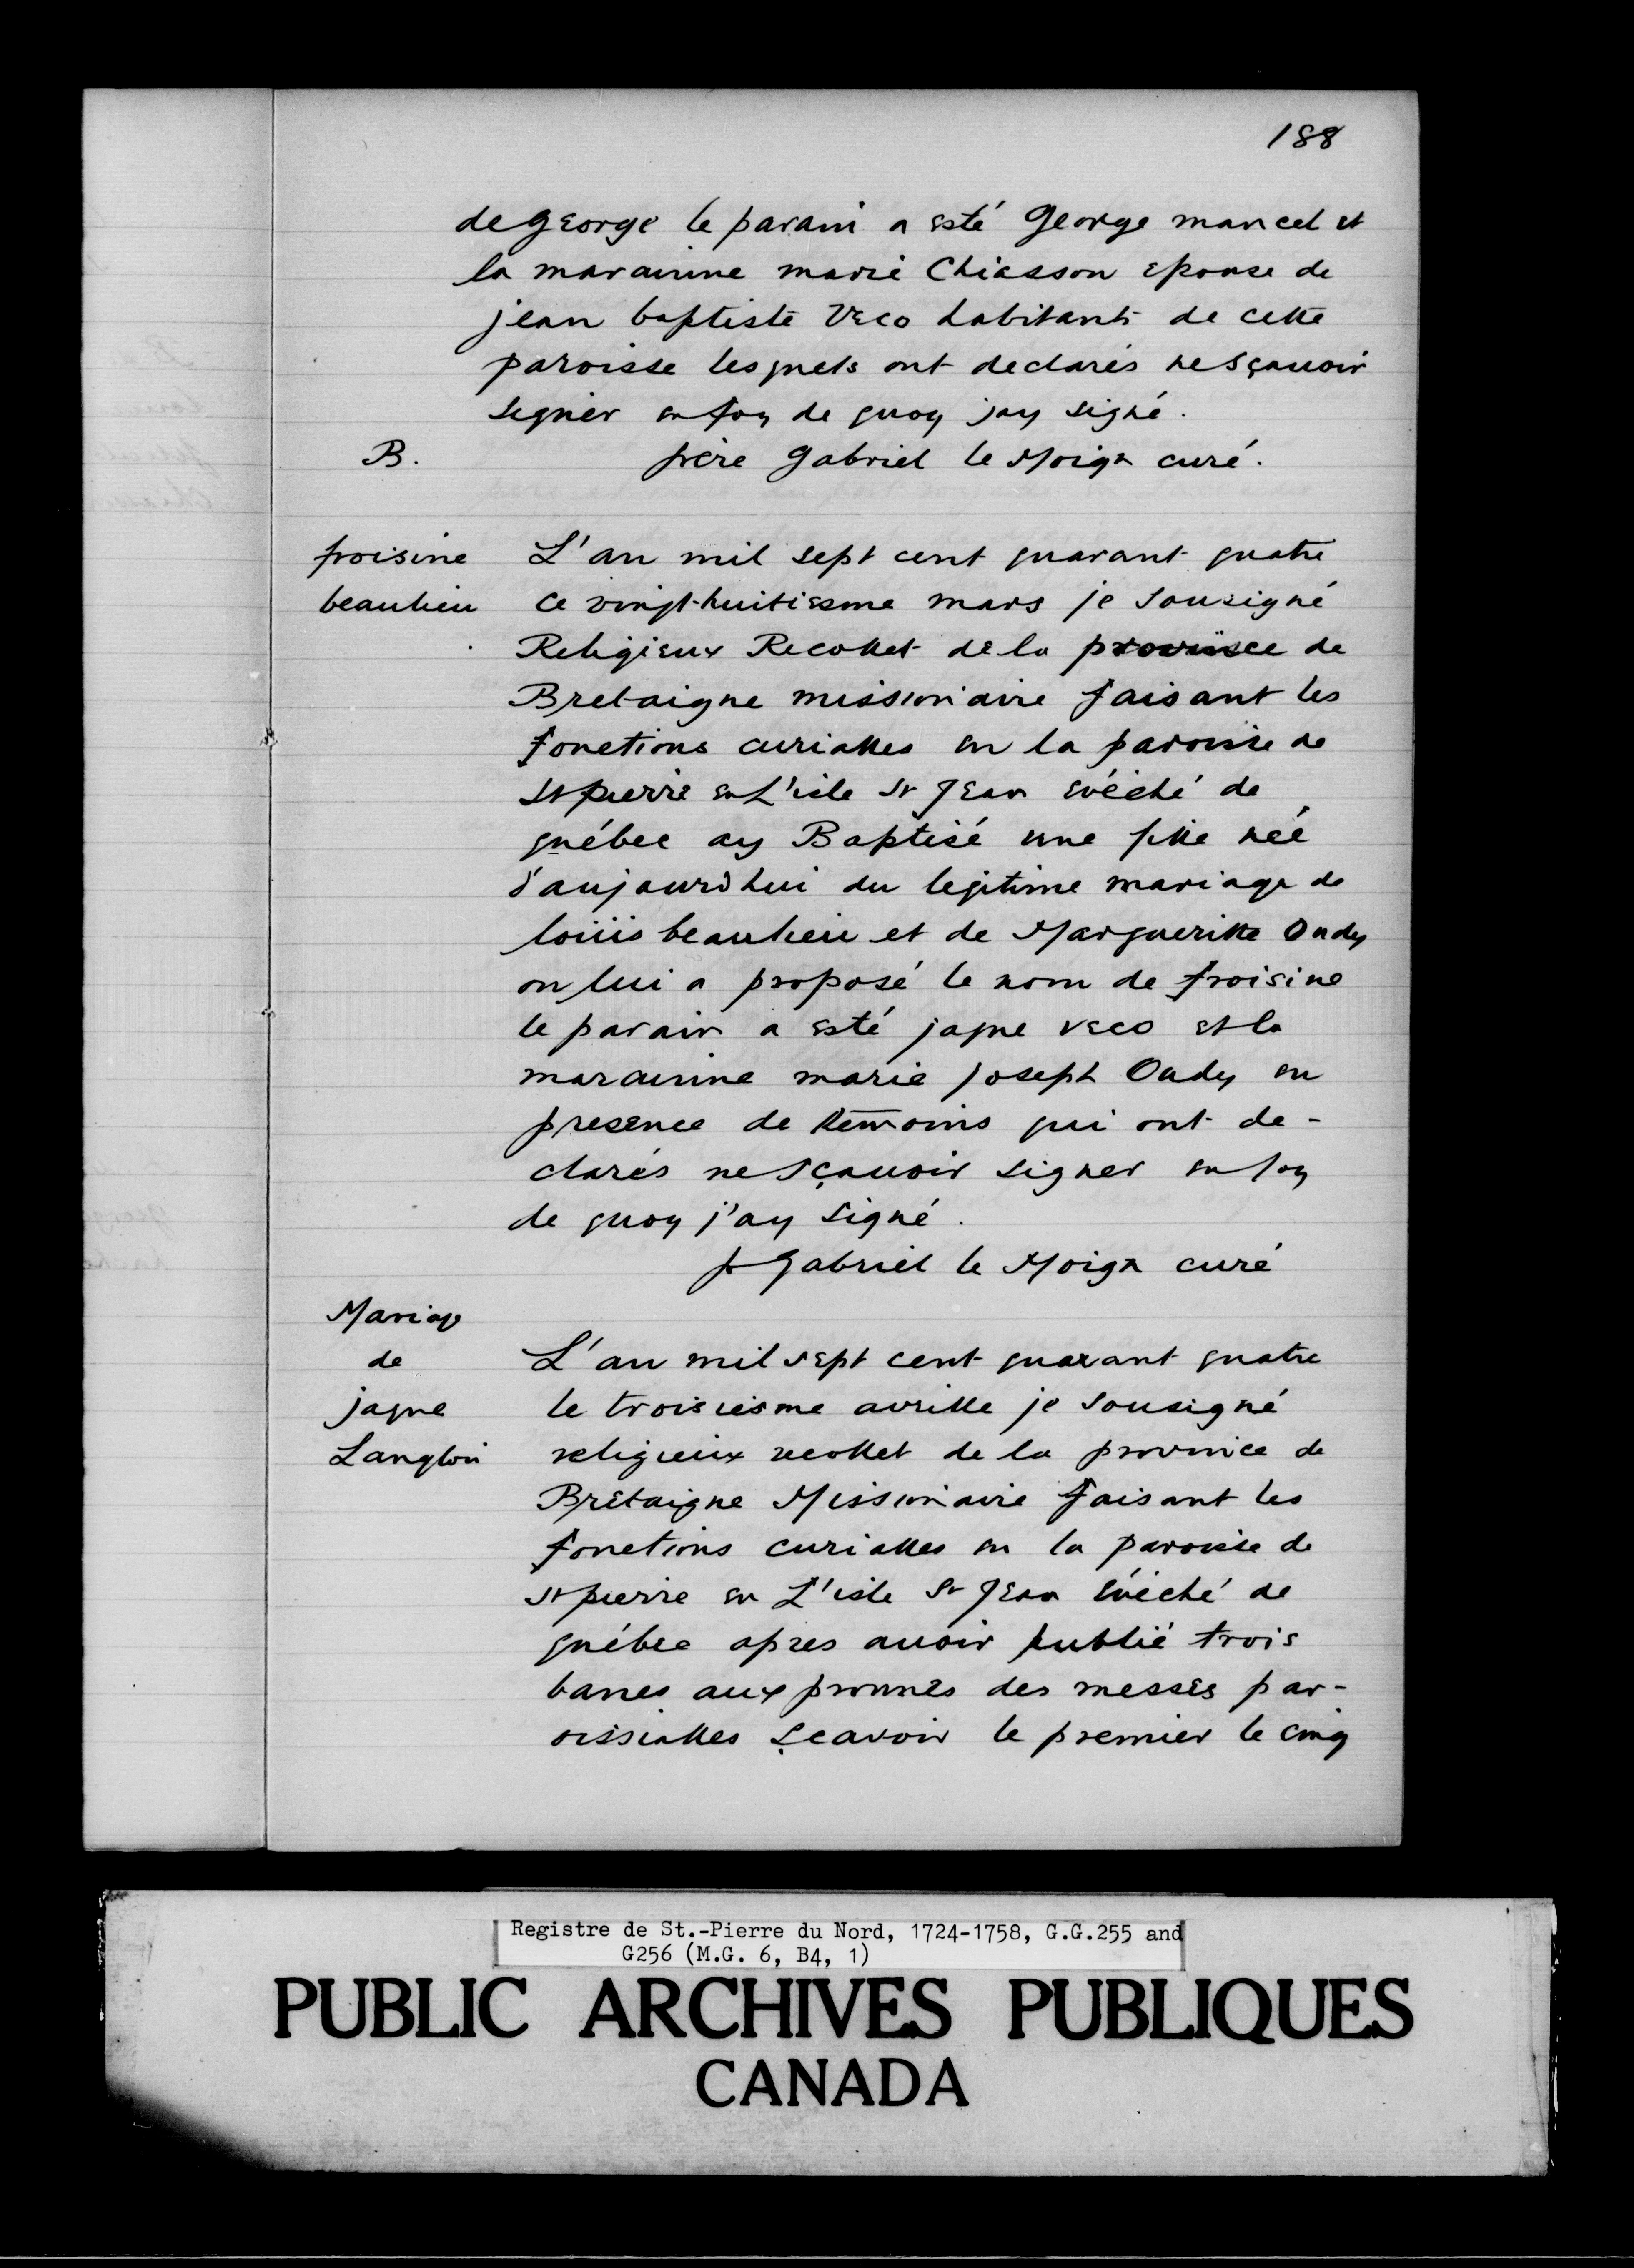 188
de george le parain a esté george mancel et
la marainne marie Chiasson epouse de
jean baptiste veco habitants de cette
paroisse lesquels ont declarés nesçauoir
signer en foy de quoy jay signé.
B.
frère gabriel le Moign curé.
froisine
beaulieu
L'an mil sept cent quarant quatre
ce vingt-huitiesme mars je sousigné
Religieux Recollet de la province de
Bretaigne missionaire faisant les
fonctions curialles en la paroisse de
St pierre en L'isle St Jean evêché de
québec ay Baptisé une fille née
d'aujourdhui du legitime mariage de
loüis beaulieu et de Margueritte Oudy
on lui a proposé le nom de froisine
le parain a esté jaque veco et la
marainne marie joseph Oudy en
presence de temoins qui ont de-
clarés ne sçauoir signer en foy
de quoy j'ay signé.
f gabriel le Moign curé
Mariage
de
jaque
Langloi
L'an mil sept cent quarant quatre
le troisiesme avrille je sousigné
religieux recollet de la province de
Bretaigne Missionaire faisant les
fonctions curialles en la paroisse de
St pierre en L'isle St Jean evêché de
québec apres auoir publié trois
bancs aux pronnes des messes par-
oissialles sçeavoir le premier le cinq
Registre de St.-Pierre du Nord, 1724-1758, G.G.255 and
G256 (M.G. 6, B4, 1)
PUBLIC ARCHIVES PUBLIQUES
CANADA